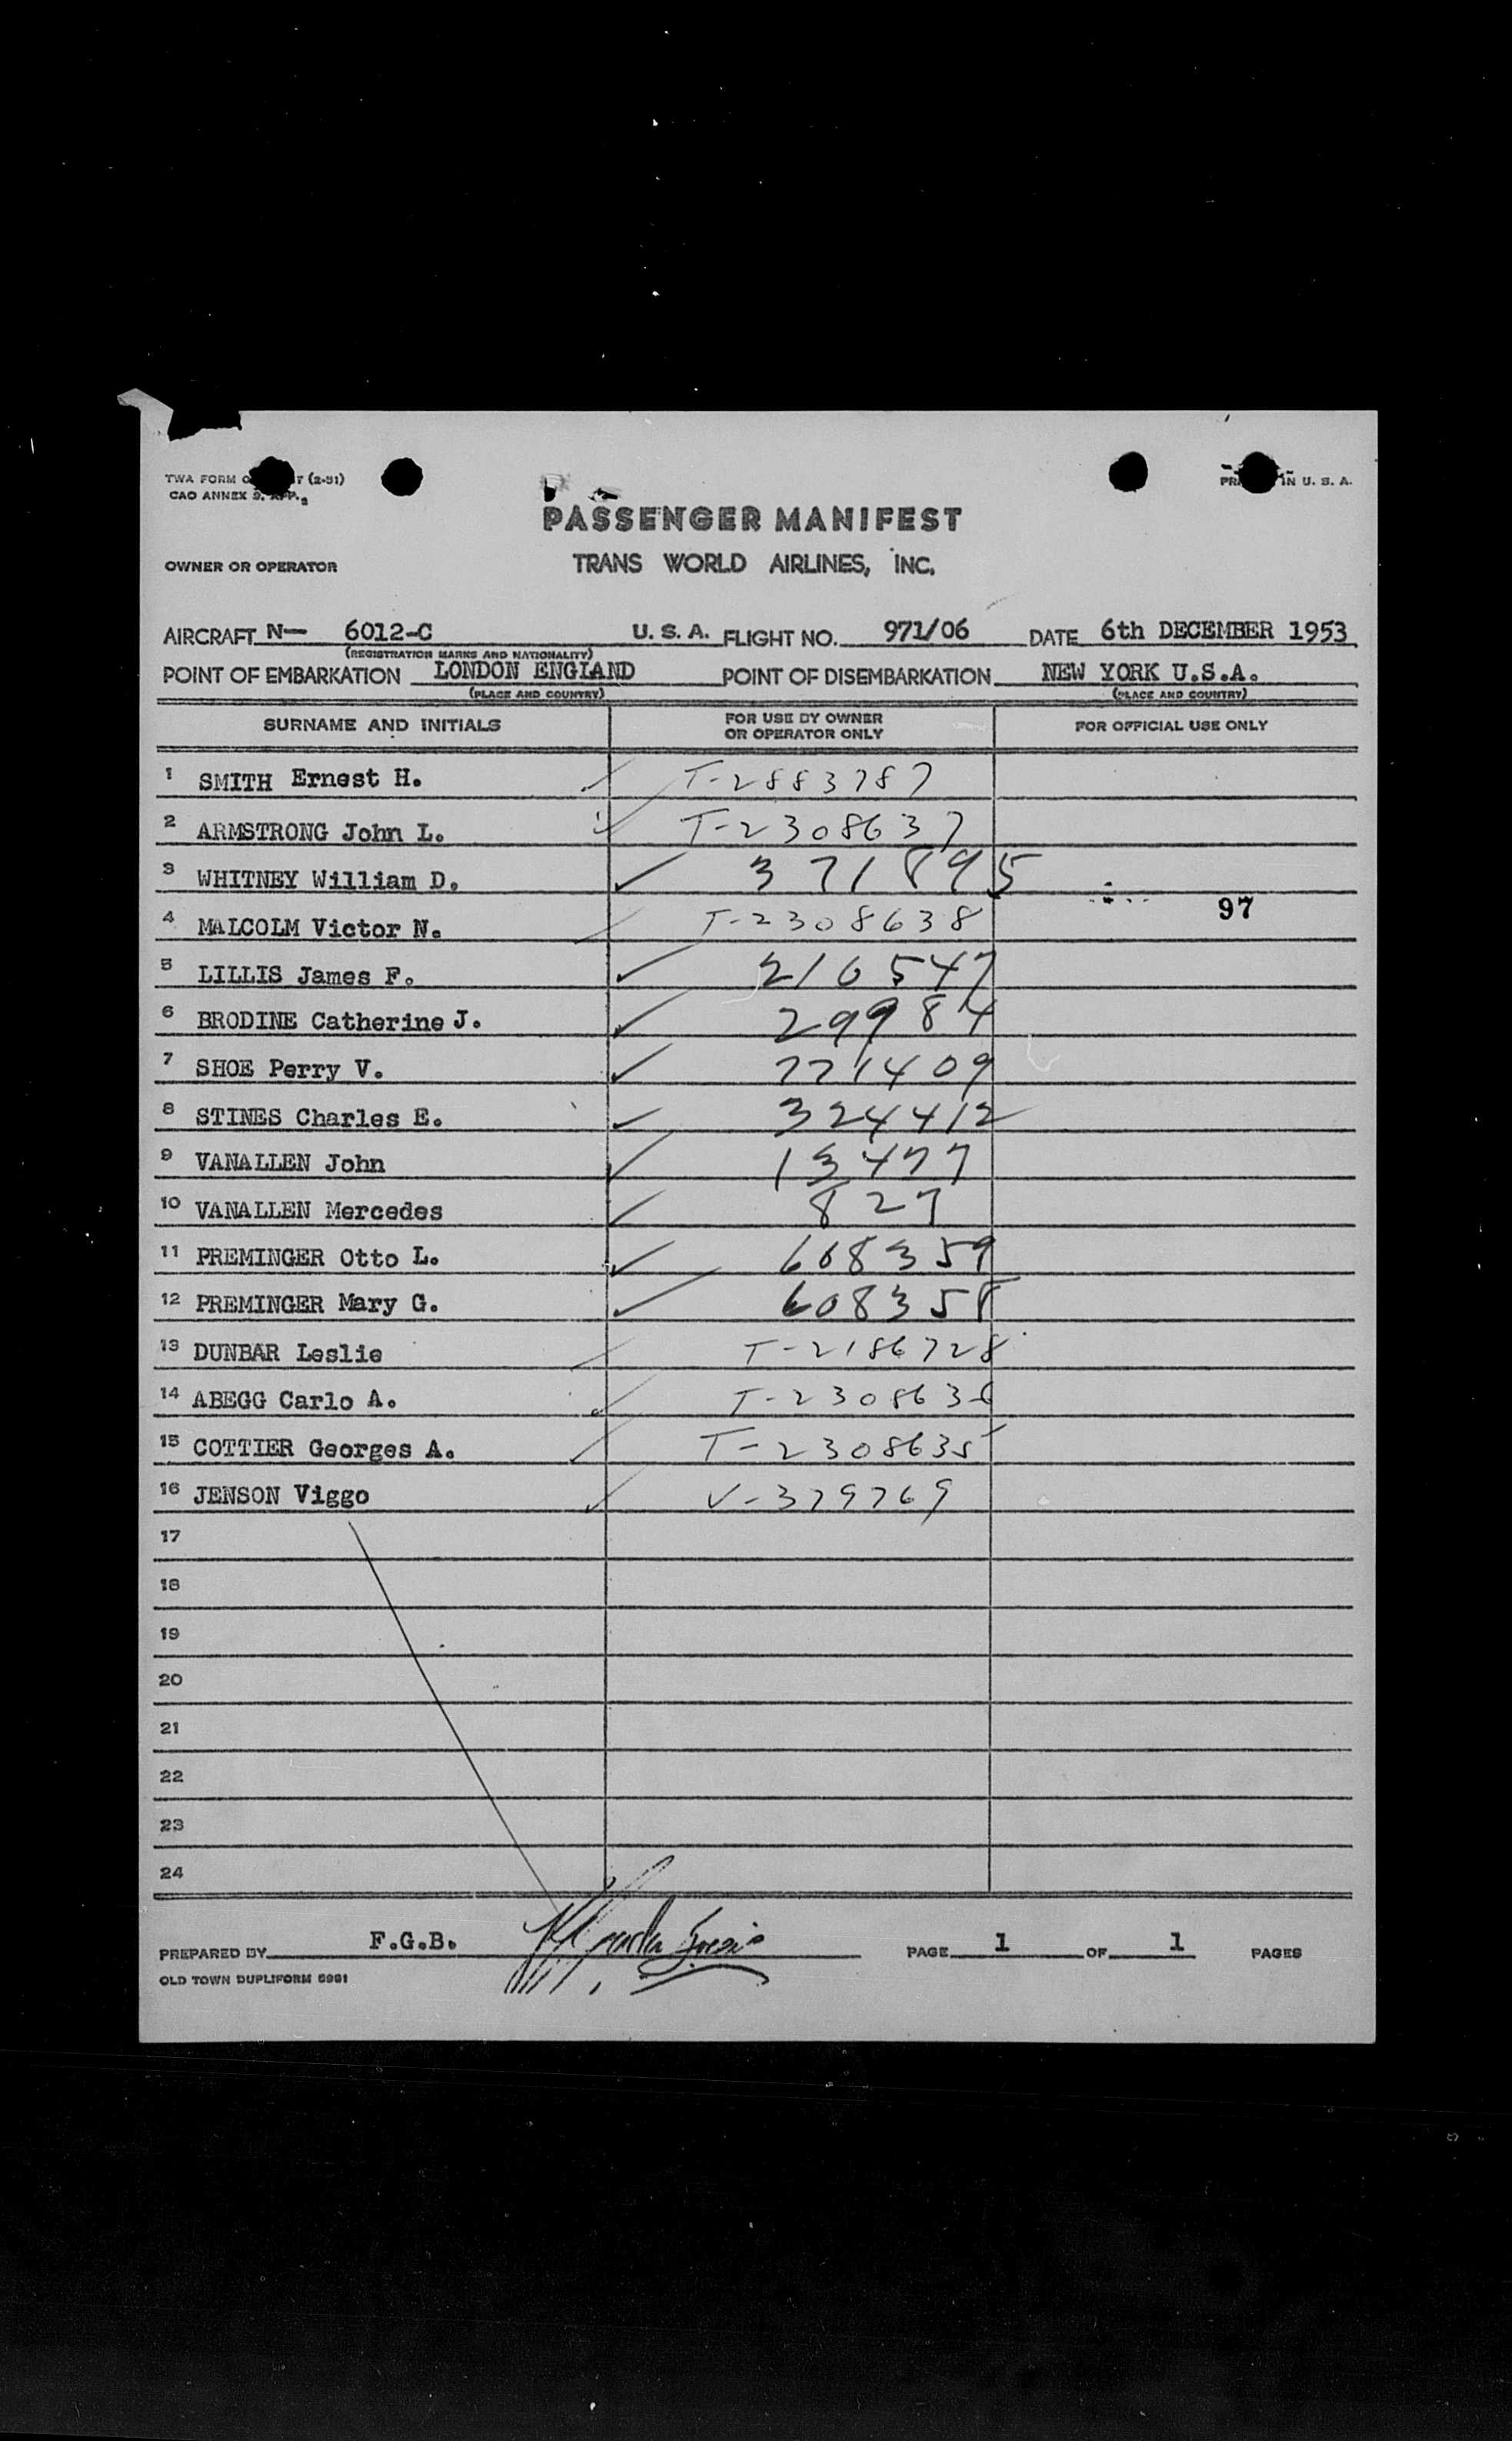 TWA FORM (2-51)
CAO ANNEX 9, APP. 2
IN U. S. A.
PASSENGER MANIFEST
OWNER OR OPERATOR TRANS WORLD AIRLINES, INC.
AIRCRAFT N- 6012-C U. S. A. FLIGHT NO. 971/06 DATE 6th DECEMBER 1953
(REGISTRATION MARKS AND NATIONALITY)
POINT OF EMBARKATION LONDON ENGLAND POINT OF DISEMBARKATION NEW YORK U.S.A.
(PLACE AND COUNTRY) (PLACE AND COUNTRY)
SURNAME AND INITIALS FOR USE BY OWNER OR OPERATOR ONLY FOR OFFICIAL USE ONLY
1 SMITH Ernest H. T-2883787
2 ARMSTRONG John L. T-2308637
3 WHITNEY William D. 371895
97
4 MALCOLM Victor N. T-2308638
5 LILLIS James F. 216547
6 BRODINE Catherine J. 29984
7 SHOE Perry V. 221409
8 STINES Charles E. 324412
9 VANALLEN John 13477
10 VANALLEN Mercedes 827
11 PREMINGER Otto L. 608359
12 PREMINGER Mary G. 608358
13 DUNBAR Leslie T-2186728
14 ABEGG Carlo A. T-2308636
15 COTTIER Georges A. T-2308635
16 JENSON Viggo V-379769
17
18
19
20
21
22
23
24
PREPARED BY F.G.B. PAGE 1 OF 1 PAGES
OLD TOWN DUPLIFORM 5991